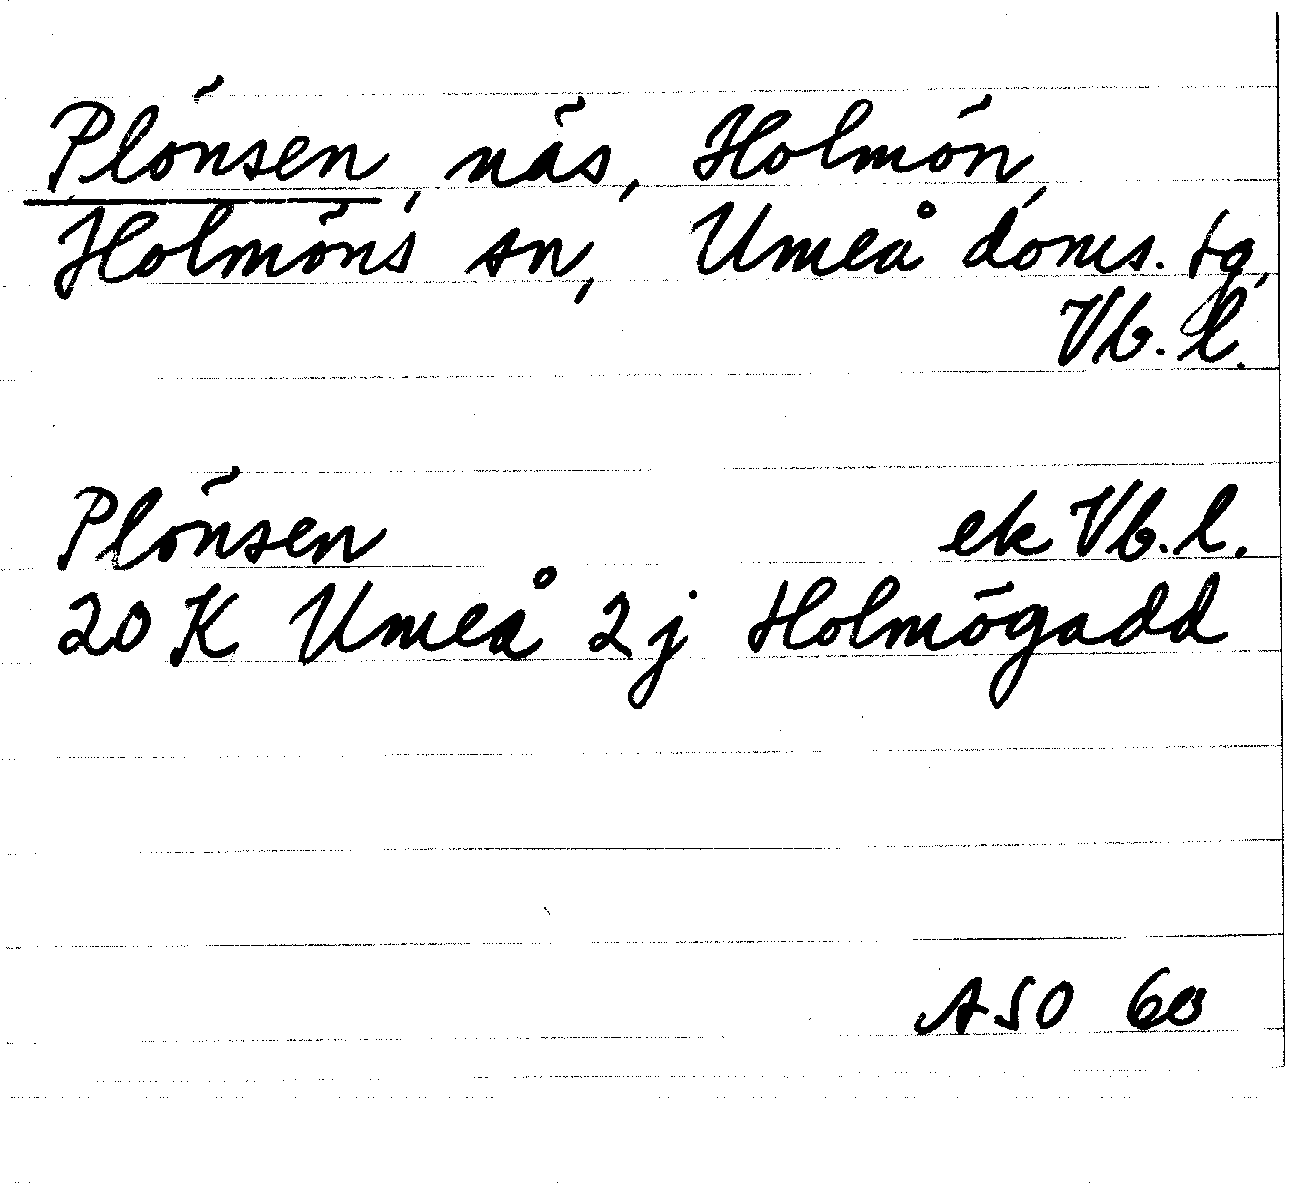 Plönsen, näs, Holmön,
Holmöns sn, Umeå doms. tg,
Vb. l.
Plönsen ek Vb. l.
20 K Umeå 2j Holmögadd
ASO 60